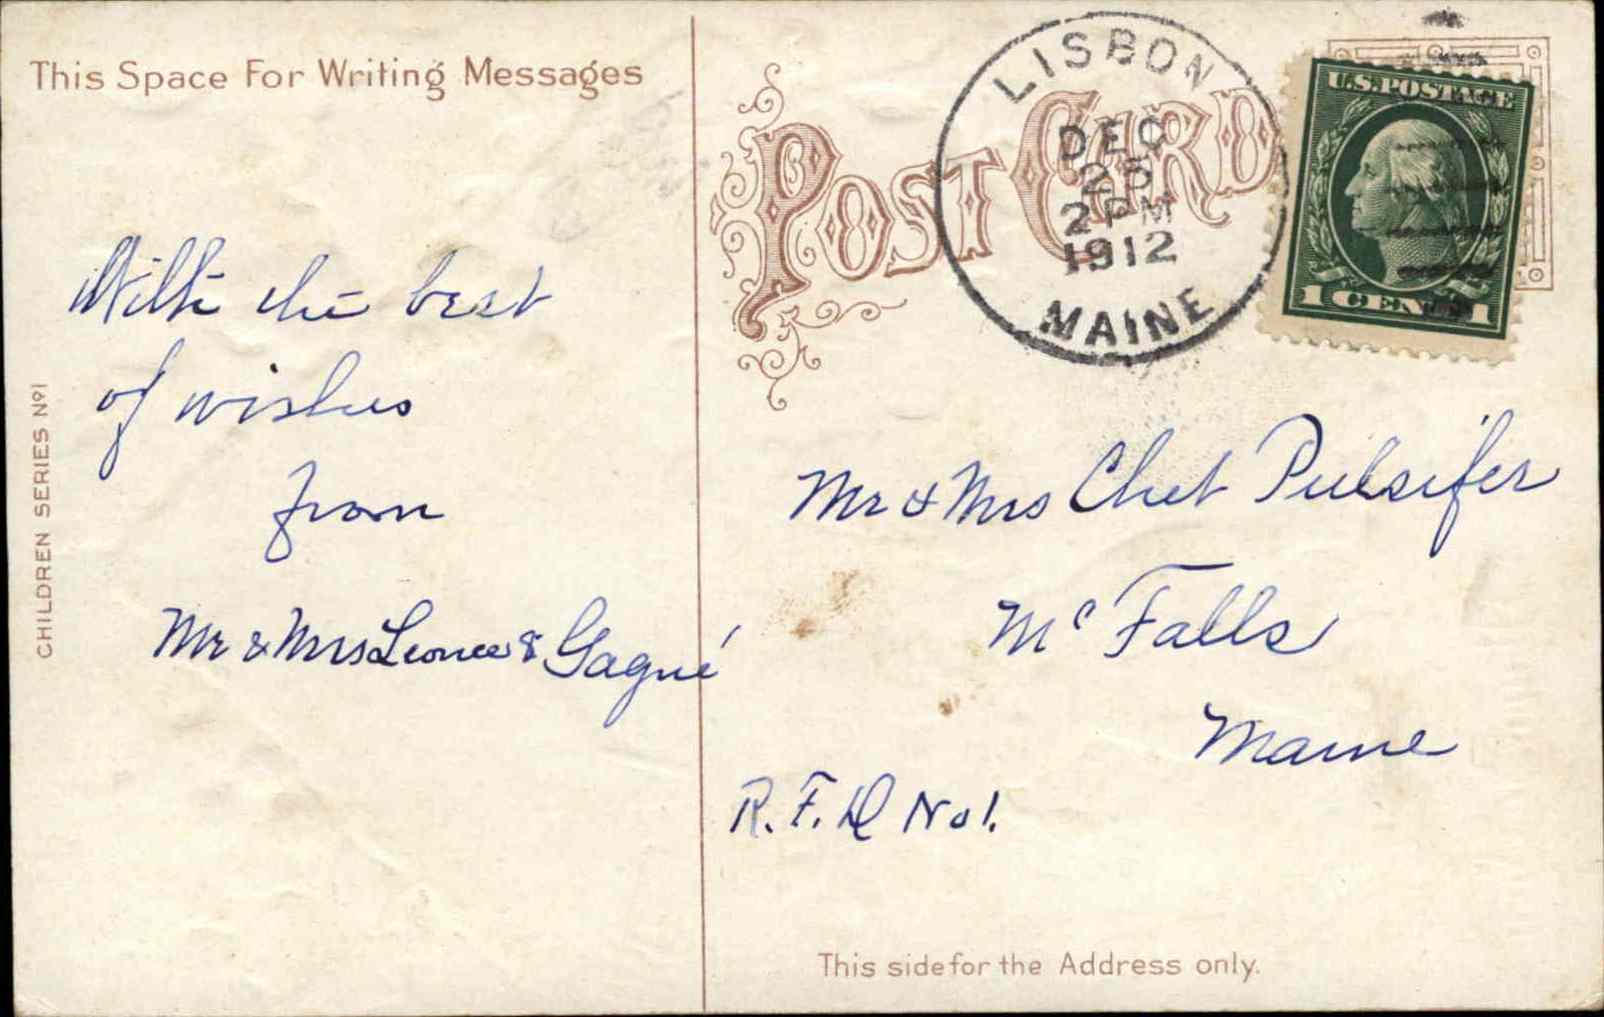 This Space For Writing Messages
With the best
of wishes
from
Mr & Mrs Leonce & Gagné
CHILDREN SERIES No1
POST CARD
LISBON
DEC
25
2 PM
1912
MAINE
U.S. POSTAGE
1 CENT 1
Mr & Mrs Chet Pulsifer
Mc Falls
Maine
R.F.D No 1.
This side for the Address only.